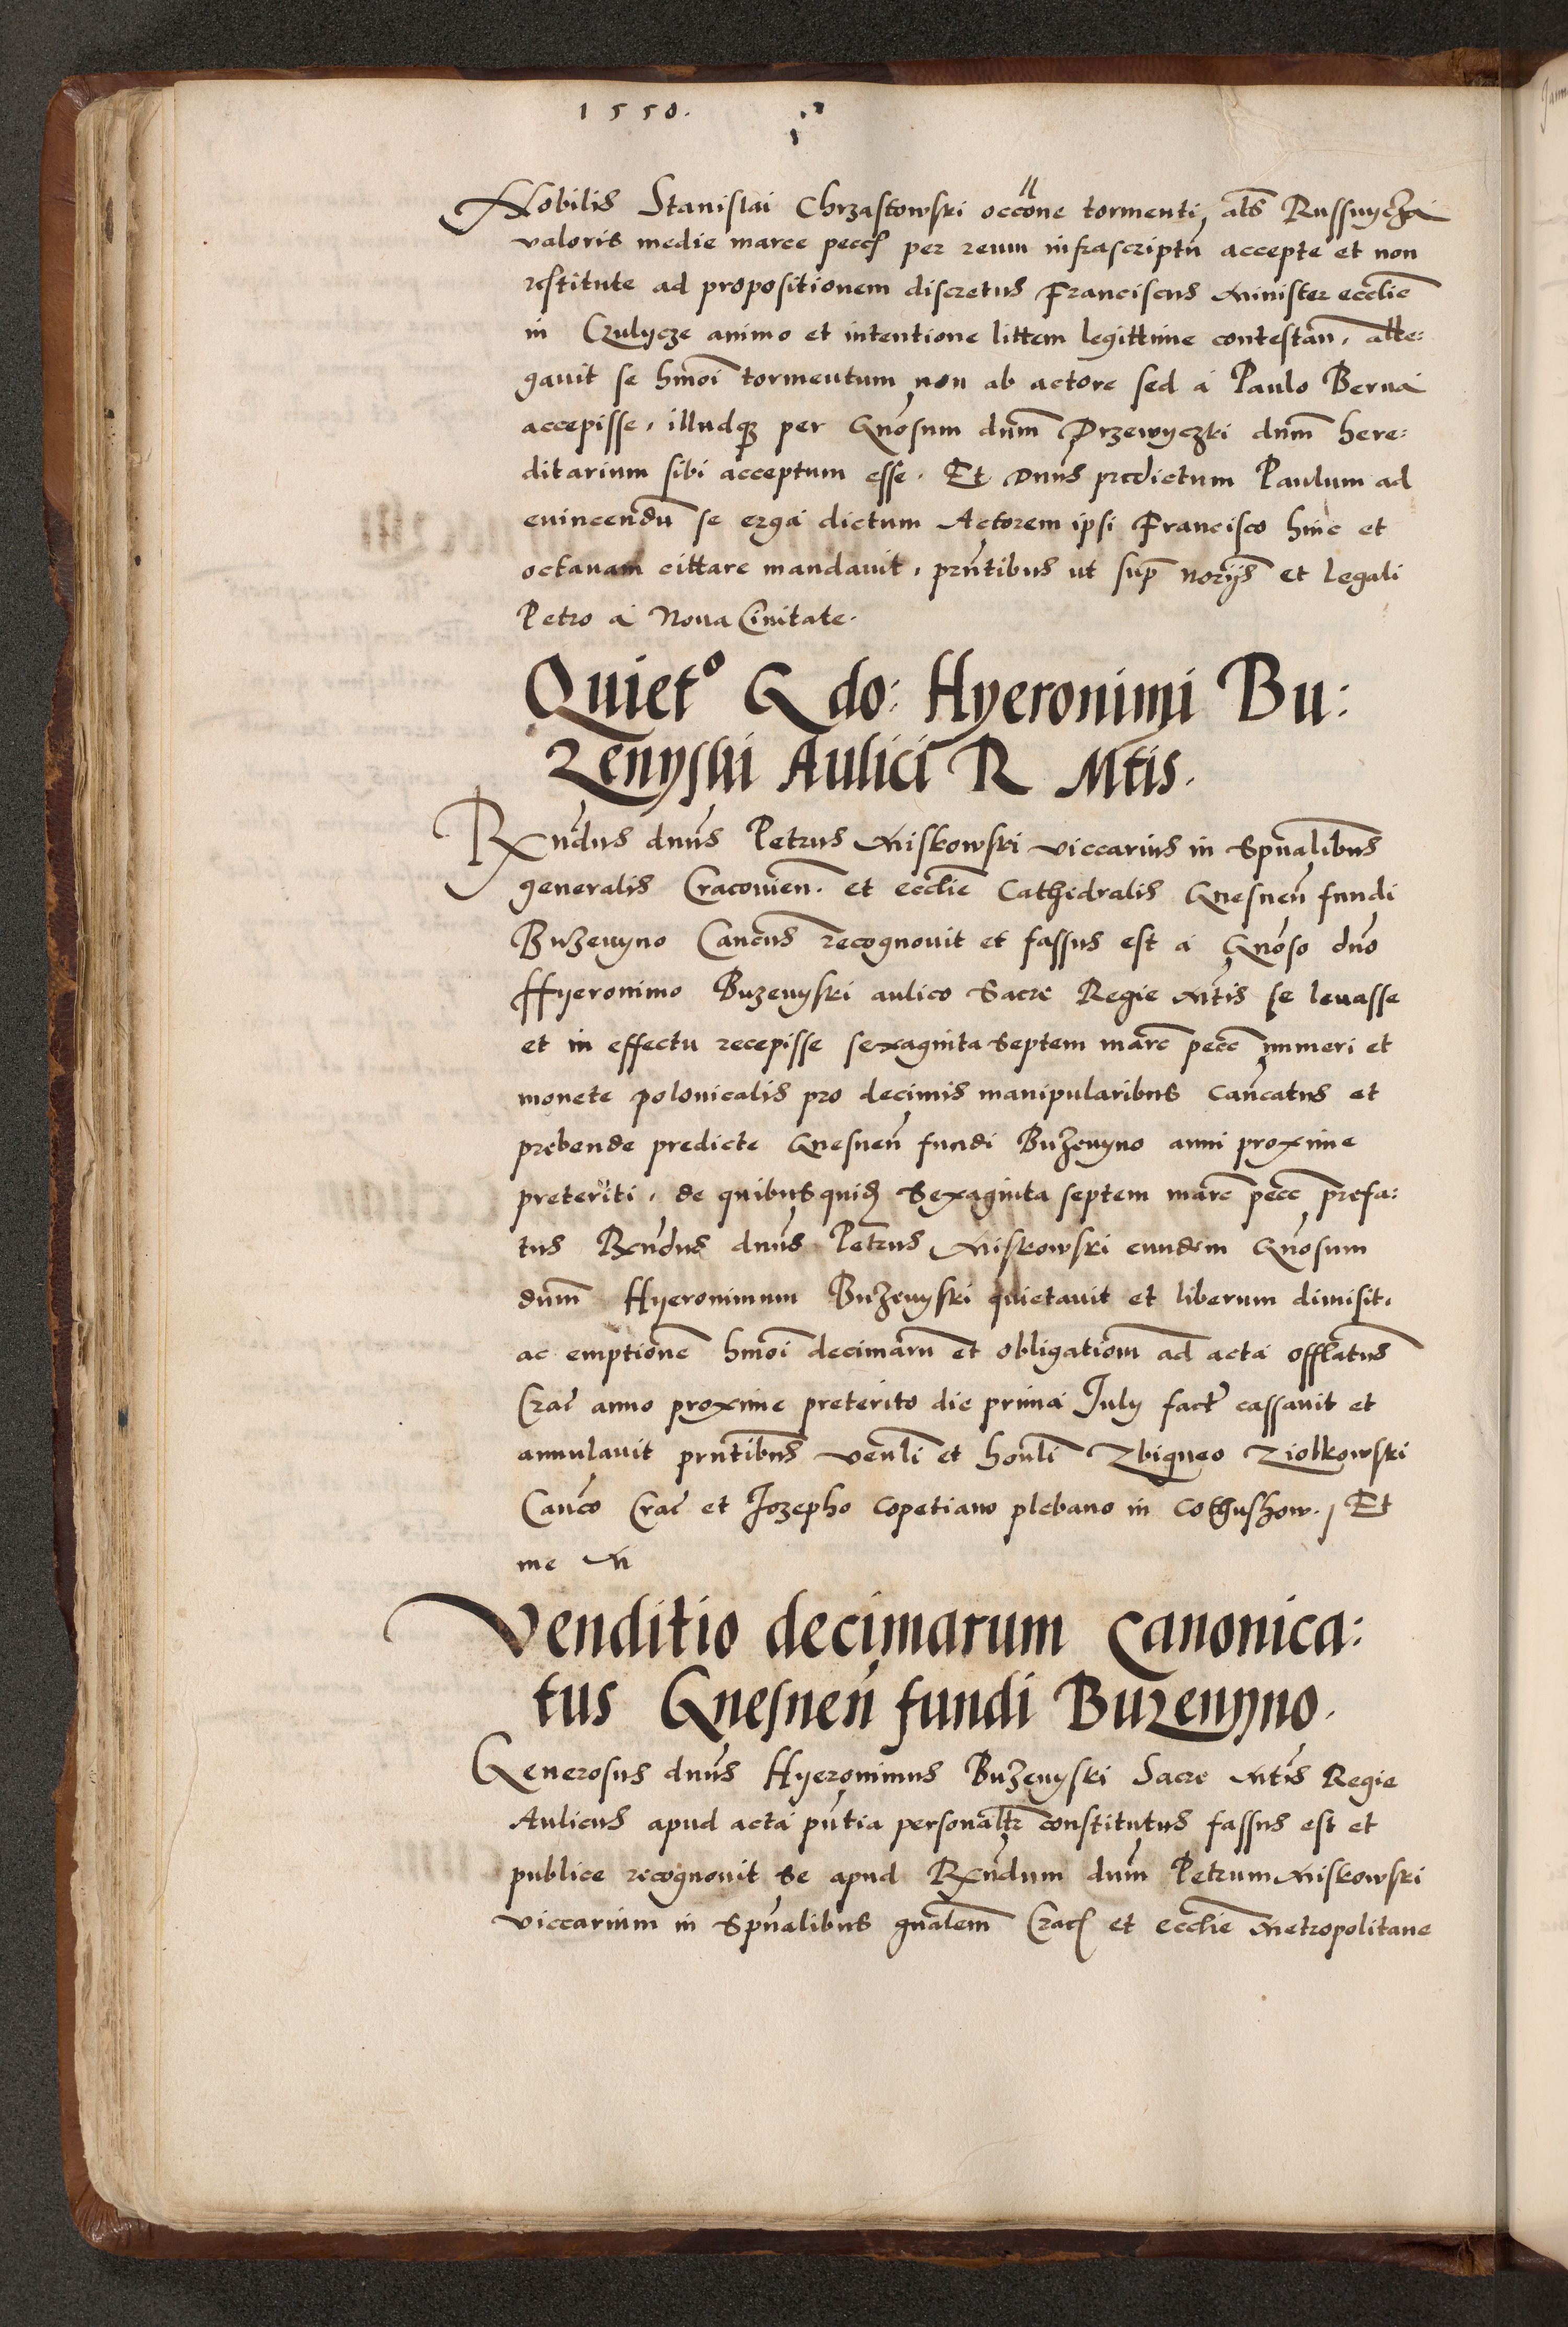 1550.
Nobilis Stanislai Chrzastowski occōne tormenti, als Russnycza
valoris medie marce pecc̄ per reum infrascriptū accepte et non
restitute ad propositionem discretus Franciscus Minister ecclie
in Czulycze animo et intentione littem legittime contestan̄. alle:
gauit se hmoi tormentum non ab actore sed a Paulo Berna
accepisse, illudq3 per Gnōsum dnm̄ Przewyczki dnm̄ here:
ditarium sibi acceptum esse. Et Dnus predictum Paulum ad
euincendū se erga dictum Actorem ipsi Francisco hinc et
octauam cittare mandauit, prn̄tibus ut sup̄ norijs et legali
Petro a Noua Ciuitate.
Quietº G do: Hyeronimi Bu:
zenyski Aulici R Mtis.
Rn̄dus dnūs Petrus Miskowski viccarius in Spūalibus
generalis Cracouien̄. et ecclie Cathedralis Gnesnen̄ fundi
Buzenyno Can̄cus recognouit et fassus est a Gnōso dno
Hyeronimo Buzenyski aulico Sacre Regie Mtis se leuasse
et in effectu recepisse sexaginta septem marc̄ pecc̄ numeri et
monete polonicalis pro decimis manipularibus can̄catus et
prebende predicte Gnesnen̄ fundi Buzenyno anni proxime
preteriti, de quibusquid3 Sexaginta septem marc̄ pecc̄ prefa:
tus Rn̄dus dnūs Petrus Miskowski eundem Gnōsum
dnm̄ Hyeronimum Buzenyski quietauit et liberum dimisit.
ac emptionē hmoi decimarū et obligationm̄ ad acta officlatus
Crac̄ anno proxime preterito die prima July fact̄ cassauit et
annulauit prn̄tibus ven̄li et hon̄li Zbigneo Ziolkowski
Can̄co Crac̄ et Jozepho Copetiano plebano in Coghushow. Et
me M
Venditio decimarum canonica:
tus Gnesnen̄ fundi Buzenyno.
Generosus dnūs Hyeronimus Buzenyski Sacre Mtis Regie
Aulicus apud acta pn̄tia personalt̄r constitutus fassus est et
publice recognouit se apud Rn̄dum dnm̄ Petrum Miskowski
viccarium in Spūalibus gn̄alem Crac̄ et ecclie Metropolitane